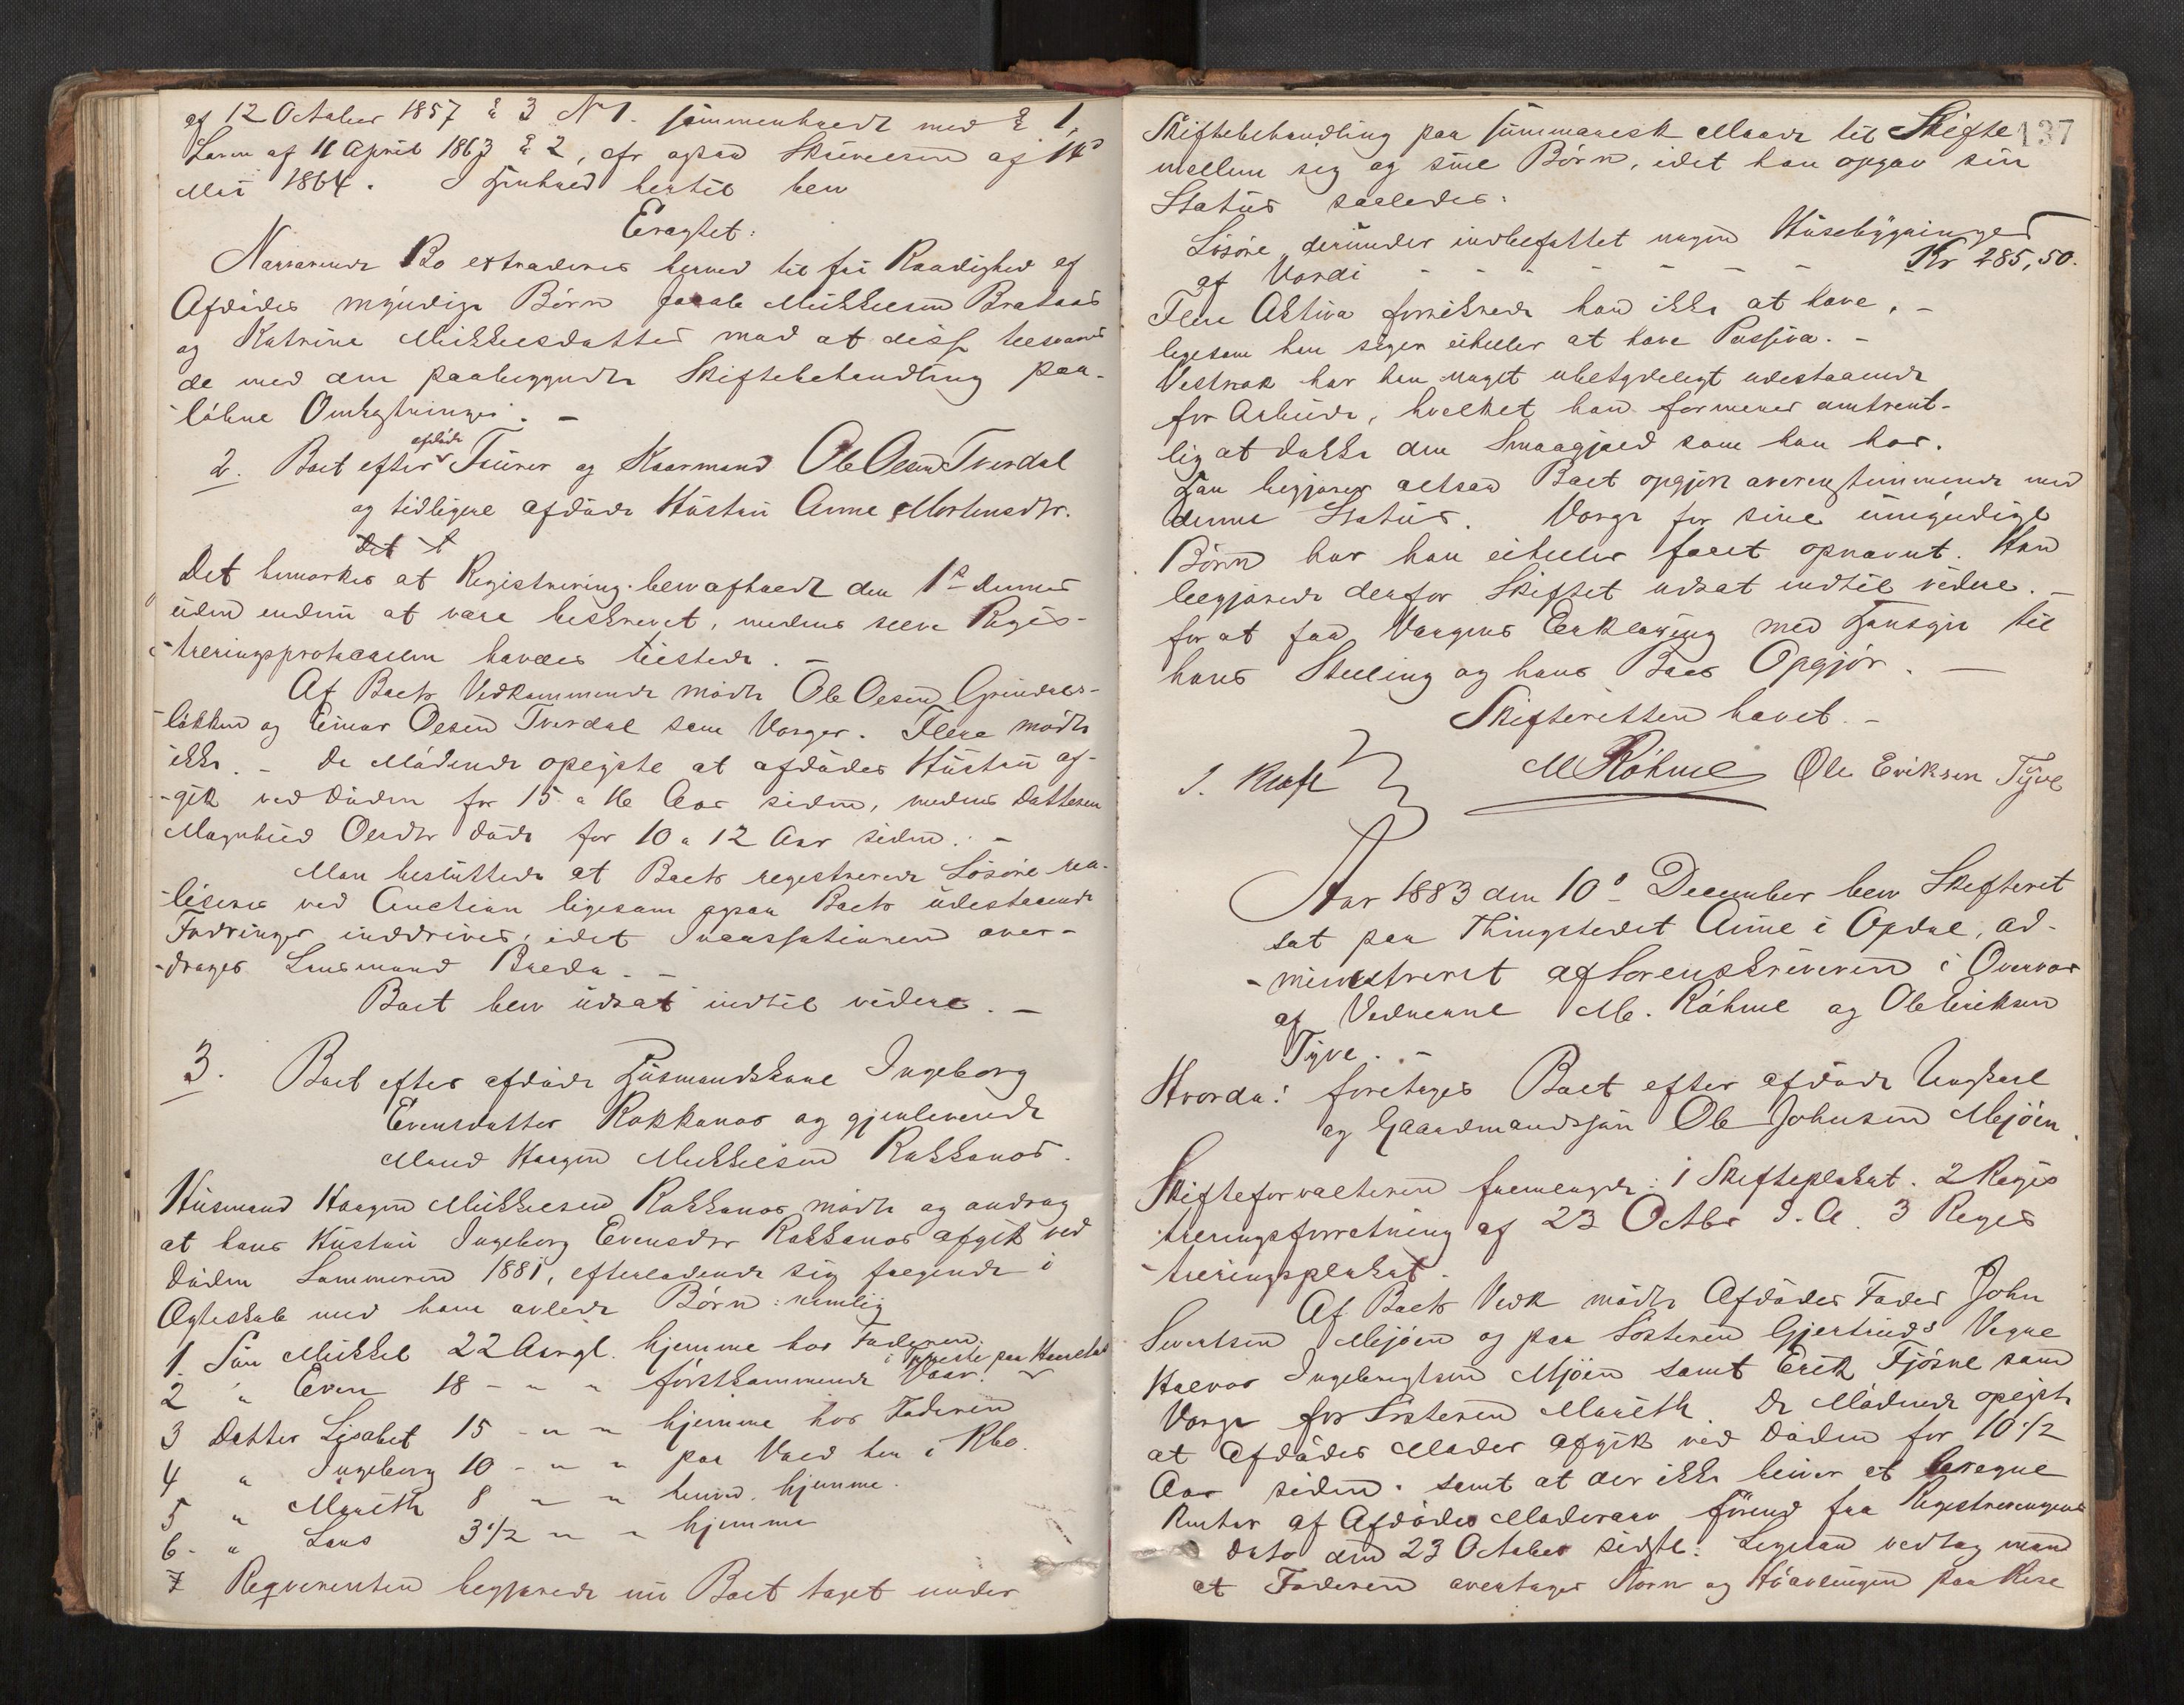 af 12 October 1857 § 3 No 1. sammenholdt med § 1,
Loven af 11 April 1863 § 2, cfr ogsaa Skrivelsen af 14de
Mai 1864. I Henhold hertil blev
Eragtet:
Nærværende Bo extraderes herved til fri Raadighed af
Afdødes myndige Børn Jacob Mikkelsen Brataas
og Katrine Mikkelsdatter mod at disse tilsvarer
de med den paabegyndte Skiftebehandling paa-
løbne Omkostninger. -
2. Boet efter afdøde Enrer og Kaarmand Ole Olsen Tverdal
og tidligere afdøde Hustru Anne Mortensdtr.
Det bemærkes at Registrering blev afholdt den 1ste dennes
uden endnu at være beskrevet, medens selve Regis-
-treringsprotocollen havdes tilstede. -
Af Boets Vedkommende mødte Ole Olsen Grindals-
-løkken og Einar Olsen Tverdal som Verger. Flere mødte
ikke. - De Mødende oplyste at afdødes Hustru af-
-gik ved Døden for 15 a 16 Aar siden, medens Datteren
Magnhild Olsdtr døde for 10 a 12 Aar siden. -
Man besluttede at Boets registrerede Løsøre rea-
-liseres ved Auction ligesom ogsaa Boets udestaaende
Fordringer inddrives, idet Incassationen over-
-drages Lensmand
Boet blev udsat indtil videre. -
3. Boet efter afdøde Husmandskone Ingeborg
Evensdatter Rokkonos og gjenlevende
Mand Haagen Mikkelsen Rokkonos.
Husmand Haagen Mikkelsen Rokkonos mødte og androg
at hans Hustru Ingeborg Evensdtr Rokkonos afgik ved
Døden Sommeren 1881, efterladende sig følgende i
Ægteskab med ham avlede Børn: nemlig
1. Søn Mikkel 22 Aargl. hjemme hos Faderen.
2 " Even 18 - " - førstkommende Vaar. i paa
3 Datter Lisabet 15 - " - hjemme hos Faderen
4 " Ingeborg 10 - " - paa Væd her i Rbo.
5 " Marith 8 - " - hjemme.
6. " Lars 3 1/2 " " hjemme
Reqvirenten begjærede nu Boet taget under
137
Skiftebehandling paa summarisk Maade til Skifte
mellem sig og sine Børn, idet han opgav sin
Status saaledes:
Løsøre, derunder indbefattet nogen Husebygninger
af Værdi - - - - - - - Kr 285,50.
Flere Aktiva forsikrede han ikke at have, -
ligesom han siger eiheller at have Passiva. -
Vistnok har han noget ubetydeligt udestaaende
for Arbeide, hvilket han formener omtrent-
lig at dække den Smaagjæld som han har.
Han begjærer altsaa Boet opgjort overensstemmende med
denne Status. Verge for sine umyndige
Børn har han eiheller faaet opnævnt. Han
begjærede derfor Skiftet udsat indtil videre. -
for at faa Vergens Erklæring med Hensyn til
hans Stilling og hans Boes Opgjør. -
Skifteretten hævet. -
M Röhme Ole Eriksen Tyve
Aar 1883 den 10de December blev Skifteret
sat paa Thingstedet Aune i Opdal, ad-
-ministreret af Sorenskriveren i Overvær
af Vidnerne M. Röhme og Ole Eriksen
Tyve. -
Hvorda: foretages Boet efter afdøde Ungkarl
og Gaardmandssøn Ole Johnsen Mejøen.
Skifteforvalteren fremlagde: 1 Skifteplakat. 2 Regis
-treringsforretning af 23 Octbr d. A. 3 Regis
-treringsplakat.
Af Boets Vedk mødte Afdødes Fader John
Sivertsen Mejøen og paa Søsteren Gjertruds Vegne
Halvor Ingebrigtsen Mjøen samt Erik Fjøsne som
Verge for Søsteren Marith. De Mødende oplyste
at Afdødes Moder afgik ved Døden for 10 1/2
Aar siden. samt at der ikke bliver at beregne
Renter af Afdødes Modersarv førend fra Registreringens
Dato den 23 October sidste. Ligesaa vedtog man
at Faderen overtager Korn og Høavlingen paa